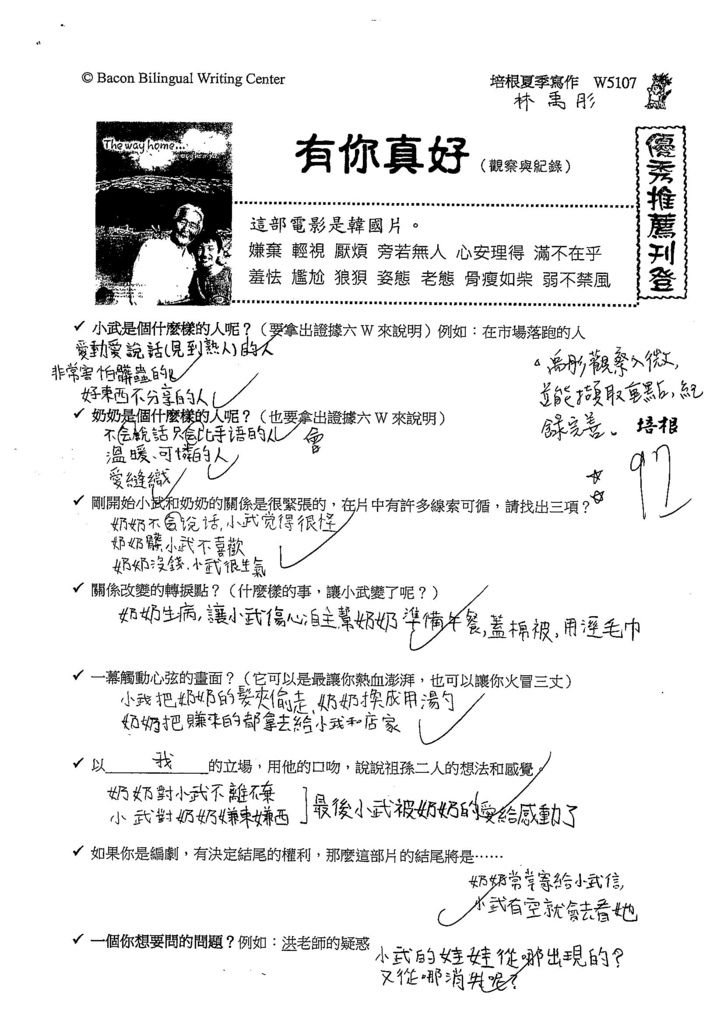 © Bacon Bilingual Writing Center
培根夏季寫作 W5107
林禹彤
The way home...
有你真好（觀察與紀錄）
優秀推薦刊登
這部電影是韓國片。
嫌棄 輕視 厭煩 旁若無人 心安理得 滿不在乎
羞怯 尷尬 狼狽 姿態 老態 骨瘦如柴 弱不禁風
✓ 小武是個什麼樣的人呢？（要拿出證據六 W 來說明）例如：在市場落跑的人
愛動愛說話(見到熟人)的人
非常害怕髒蟲的
好東西不分享的人
禹彤觀察入微，
並能擷取重點，紀
錄完善。 培根
97
✓ 奶奶是個什麼樣的人呢？（也要拿出證據六 W 來說明）
不会說話只会比手语的人 會
溫暖、可憐的人
愛縫織
✓ 剛開始小武和奶奶的關係是很緊張的，在片中有許多線索可循，請找出三項？
奶奶不会說话，小武觉得很怪
奶奶髒小武不喜歡
奶奶沒錢、小武很生氣
✓ 關係改變的轉捩點？（什麼樣的事，讓小武變了呢？）
奶奶生病，讓小武傷心自主幫奶奶準備午餐，蓋棉被，用溼毛巾
✓ 一幕觸動心弦的畫面？（它可以是最讓你熱血澎湃，也可以讓你火冒三丈）
小武把奶奶的髮夾偷走，奶奶換成用湯勺
奶奶把賺來的都拿去給小武和店家
✓ 以 我 的立場，用他的口吻，說說祖孫二人的想法和感覺。
奶奶對小武不離不棄
小武對奶奶嫌東嫌西
最後小武被奶奶的愛給感動了
✓ 如果你是編劇，有決定結尾的權利，那麼這部片的結尾將是……
奶奶常常寄給小武信，
小武有空就會去看她
✓ 一個你想要問的問題？例如：洪老師的疑惑
小武的娃娃從哪出現的？
又從哪消失呢？